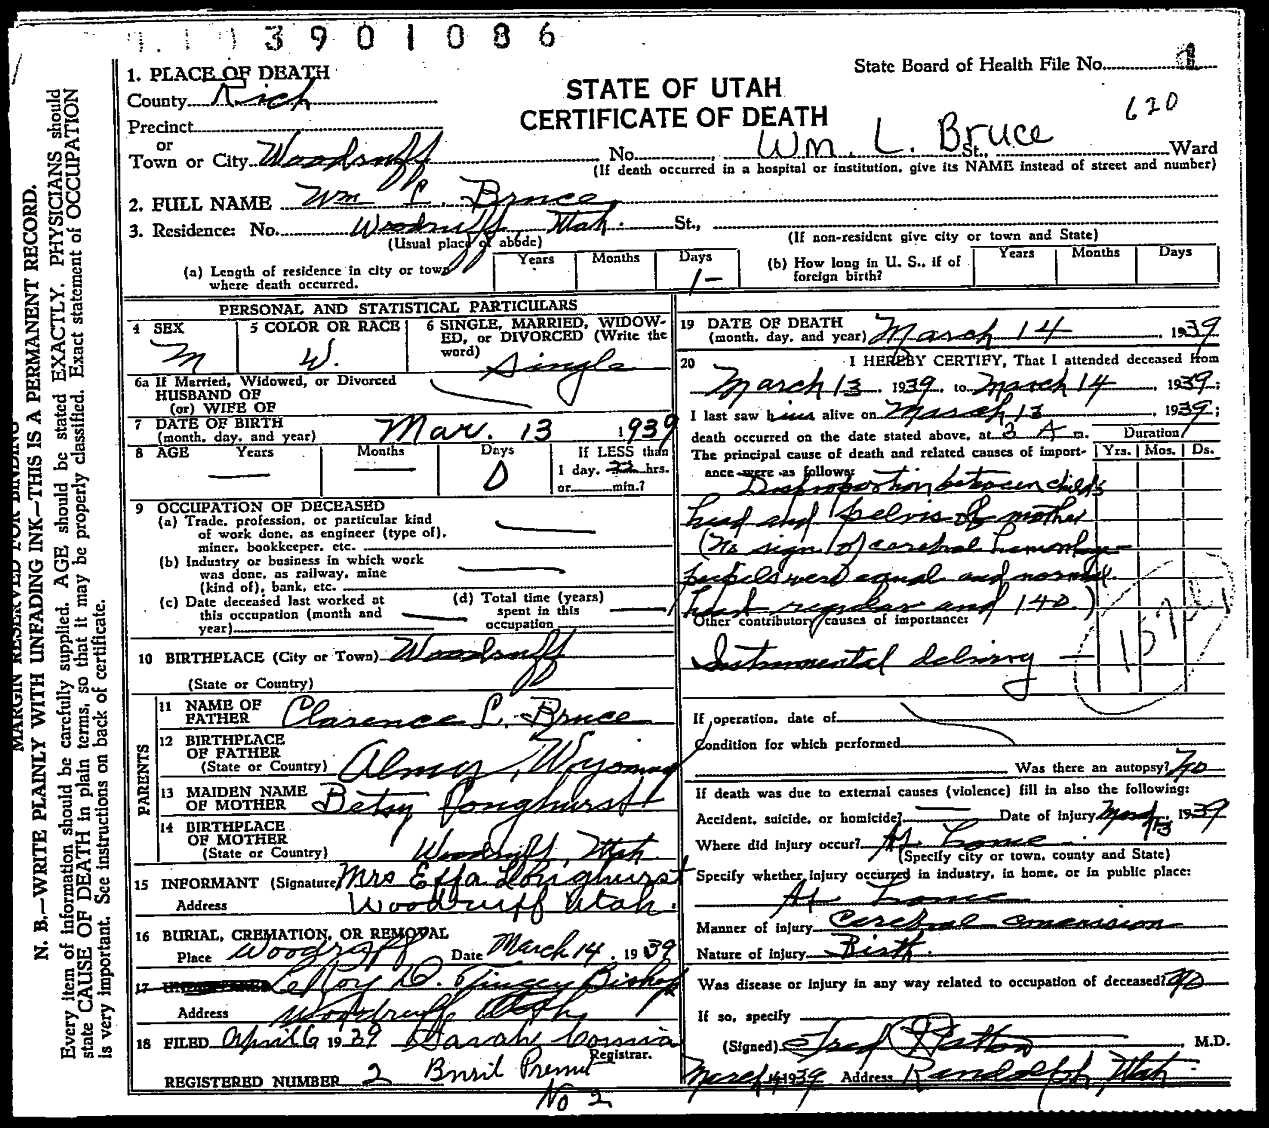 3901086
State Board of Health File No. 1
1. PLACE OF DEATH
County Rich
STATE OF UTAH
CERTIFICATE OF DEATH
620
Precinct
or
Town or City Woodruff No. Wm. L. Bruce St., Ward
(If death occurred in a hospital or institution, give its NAME instead of street and number)
2. FULL NAME Wm L. Bruce
3. Residence: No. Woodruff Utah. St.,
(Usual place of abode) (If non-resident give city or town and State)
(a) Length of residence in city or town where death occurred. Years Months Days 1-
(b) How long in U. S., if of foreign birth? Years Months Days
PERSONAL AND STATISTICAL PARTICULARS
4 SEX M
5 COLOR OR RACE W.
6 SINGLE, MARRIED, WIDOWED, OR DIVORCED (Write the word) Single
6a If Married, Widowed, or Divorced
HUSBAND OF
(or) WIFE OF
7 DATE OF BIRTH
(month, day, and year) Mar. 13 1939
8 AGE Years Months Days 0 If LESS than
1 day, hrs.
or min.?
9 OCCUPATION OF DECEASED
(a) Trade, profession, or particular kind
of work done, as engineer (type of),
miner, bookkeeper, etc.
(b) Industry or business in which work
was done, as railway, mine
(kind of), bank, etc.
(c) Date deceased last worked at
this occupation (month and
year)
(d) Total time (years)
spent in this
occupation
10 BIRTHPLACE (City or Town) Woodruff
(State or Country)
PARENTS
11 NAME OF
FATHER Clarence L. Bruce
12 BIRTHPLACE
OF FATHER
(State or Country) Almy, Wyoming
13 MAIDEN NAME
OF MOTHER Betsy Longhurst
14 BIRTHPLACE
OF MOTHER
(State or Country) Woodruff, Utah
15 INFORMANT (Signature) Mrs Effa Longhurst
Address Woodruff Utah.
16 BURIAL, CREMATION, OR REMOVAL
Place Woodruff Date March 14, 1939
17 LeRoy D. Tingey Bishop
Address Woodruff Utah
18 FILED April 6 1939 Sarah
Registrar.
REGISTERED NUMBER 2 Buril Premit
No 2
19 DATE OF DEATH
(month, day, and year) March 14, 1939
20 I HEREBY CERTIFY, That I attended deceased from
March 13, 1939, to March 14, 1939;
I last saw him alive on March 13, 1939;
death occurred on the date stated above, at 3 A m.
Duration
Yrs. Mos. Ds.
The principal cause of death and related causes of importance were as follows:
Disproportion between child's
head and pelvis of mother
(No sign of cerebral hemorhage
pupils were equal and normal.
heart regular and 140.)
Other contributory causes of importance:
Instrumental delivery
If operation, date of
Condition for which performed
Was there an autopsy? No
If death was due to external causes (violence) fill in also the following:
Accident, suicide, or homicide? Date of injury March 13, 1939
Where did injury occur? At home.
(Specify city or town, county and State)
Specify whether injury occurred in industry, in home, or in public place:
At home
Manner of injury Cerebral
Nature of injury Birth.
Was disease or injury in any way related to occupation of deceased? no
If so, specify
(Signed) Fred M.D.
March 14, 1939 Address Randolph, Utah
MARGIN RESERVED FOR BINDING
N. B.—WRITE PLAINLY WITH UNFADING INK—THIS IS A PERMANENT RECORD.
Every item of information should be carefully supplied. AGE should be stated EXACTLY. PHYSICIANS should
state CAUSE OF DEATH in plain terms, so that it may be properly classified. Exact statement of OCCUPATION
is very important. See instructions on back of certificate.